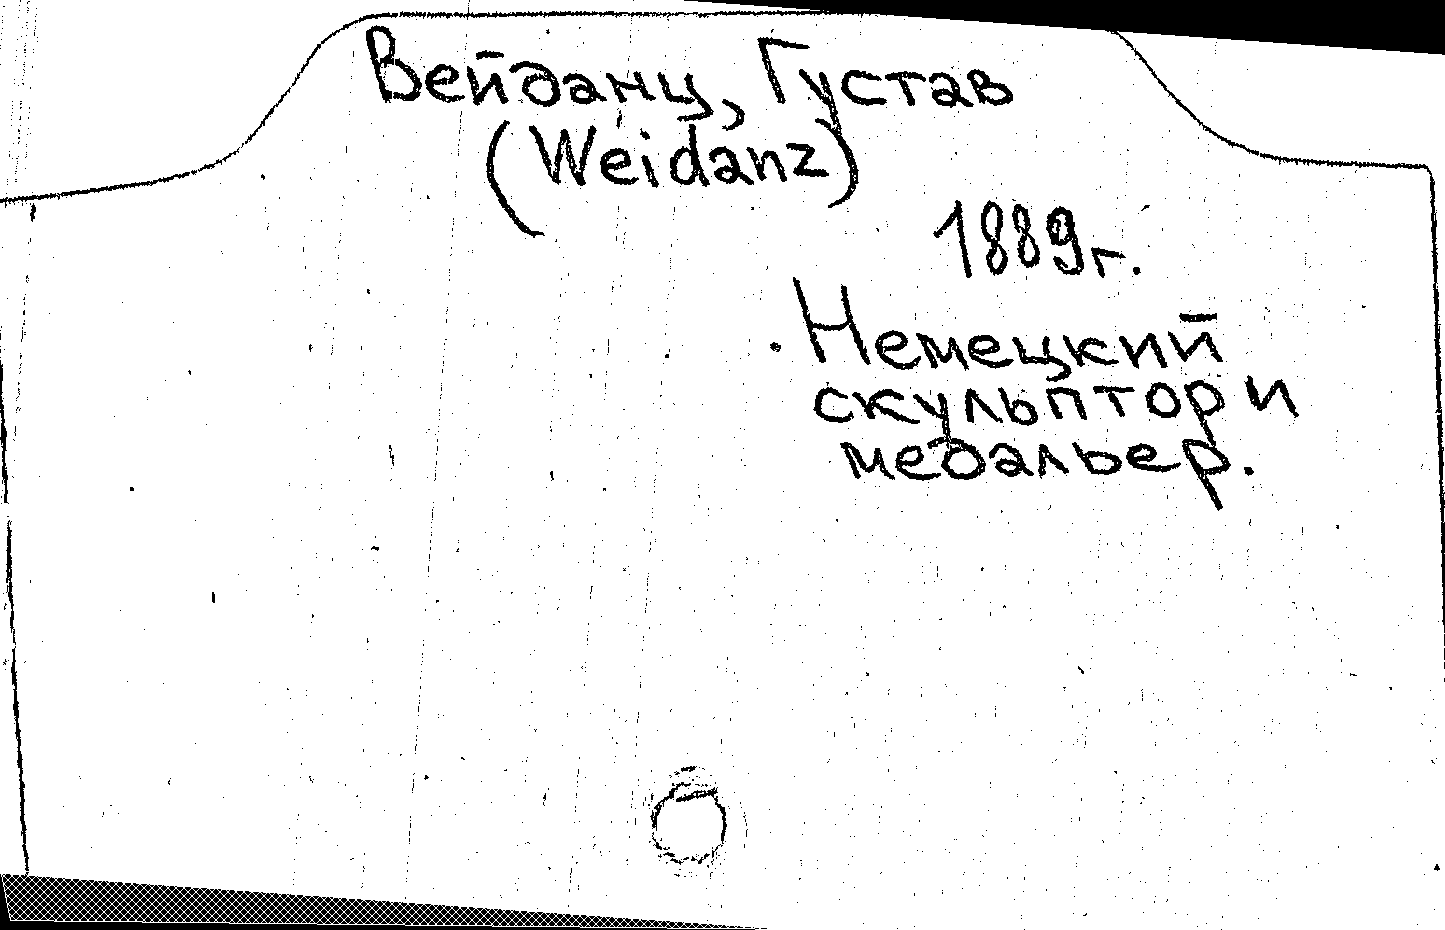 Вейданц, Густав
(Weidanz)
1889г.
Немецкий
скульптор и
медальер.